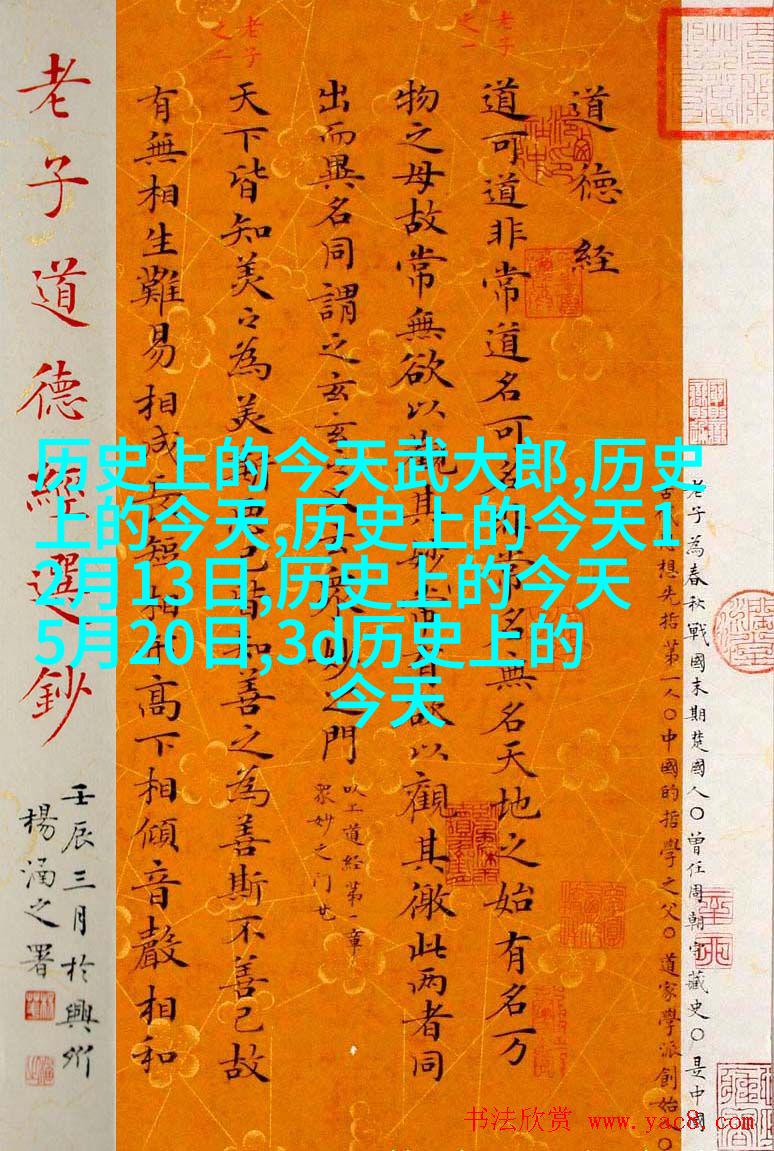 老子為春秋戰國末期楚國人〇曾任周朝守藏史〇是中國
古代思想先哲第一人〇中國的哲學之父〇道家學派創始人〇
道德經
老子
之一
道可道非常道名可名非常名無名天地之始有名万
物之母故常無欲以觀其妙常有欲以觀其徼此两者同
出而異名同謂之玄玄之又玄衆妙之門
以上道經第一章
衆妙之门也
老子
之二
天下皆知美之為美斯惡已皆知善之為善斯不善已故
有無相生難易相成長短相形高下相傾音聲相和
老子道德經選鈔
壬辰三月於興
楊涵之署
历史上的今天武大郎,历史
上的今天,历史上的今天1
2月13日,历史上的今天
5月20日,3d历史上的
今天
书法欣赏 www.yac8.com